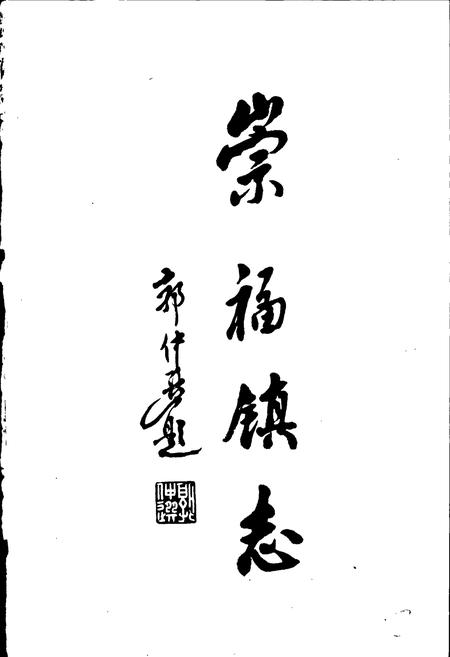 崇福镇志
郭仲选题
郭仲選